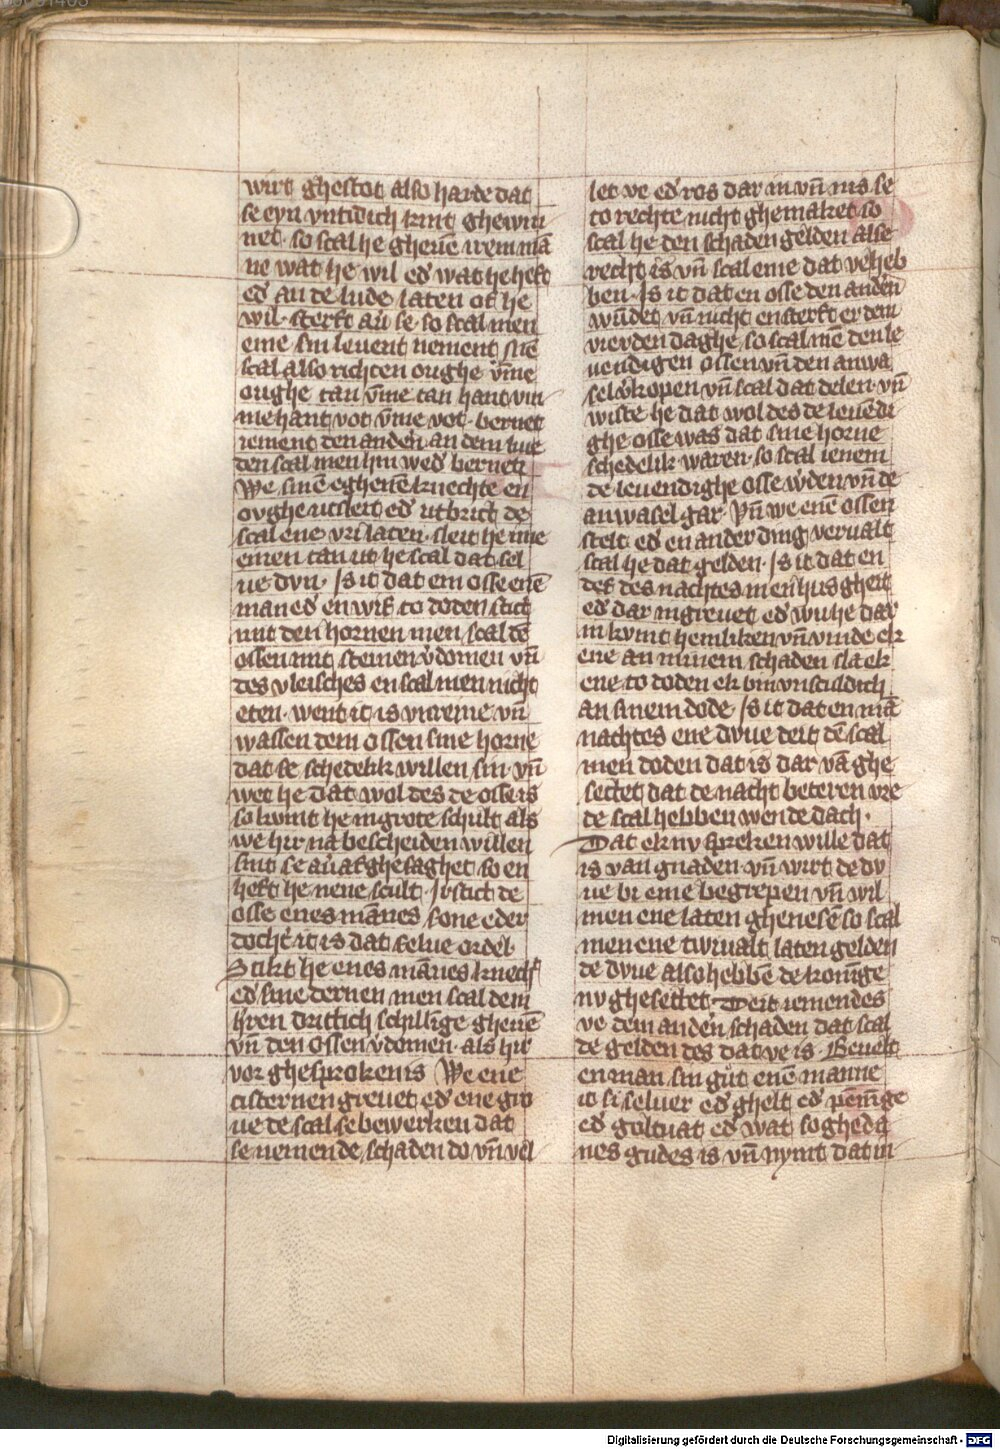 wirt ghestot also harde dat
se eyn vntidich kint ghewin
net · so scal he gheuē irem mā
ne wat he wil ed' wat he heft
ed' an de lude laten of he
wil · sterft au' se · so scal men
eme sin leuent nement · men
scal also richten oughe v̄me
oughe tan v̄me tan hant vm
me hant vot v̄me vot · bernet
iement den anden an dem liue
den scal men hin wed' bernen
We sinē eghenē knechte en
oughe utsleit ed' utbrict de
scal ene vri laten · sleit he ime
einen tan ut he scal dat sel
ue dvn · Is it dat ein osse enē
man ed' en wif to doden stict
mit den hornen men scal dē
ossen mit steinen v'domen vn̄
des vleisches en scal men nicht
eten · went it is vnreine vn̄
wassen dem ossen sine horne
dat se schedelik willen sin vn̄
wet he dat wol des de osse is
so kvmt he in grote schult als
we hir na bescheiden willen
sint se au' afghesaghet so en
heft he nene scult · Irstict de
osse enes mānes sone eder
docht' it is dat selue ordel
Stikt he enes mānes knecht
ed' sine dernen men scal dem
hren drittich schillīge gheuē
vn̄ den ossen v'domen · als hir
vor ghesproken is We ene
cisternen greuet ed' ene gro
ue de scal se bewerken dat
se nemende schaden do vn̄ vel
let ve ed' ros dar in vn̄ nis se
to rechte nicht ghemaket so
scal he den schaden gelden alse
recht is vn̄ scal eme dat ve heb
ben · Is it dat en osse den anden
wūdet vn̄ nicht en sterft er dem
vierden daghe so scal mē den le
uendigen ossen vn̄ den anwa
sel v'kopen vn̄ scal dat delen vn̄
wiste he dat wol des de leuēdi
ghe osse was dat sine horne
schedelik waren · so scal ienem
de leuendighe osse w'den vn̄ de
anwasel gar · Vn̄ we enē ossen
stelt ed' en ander ding verualt
scal he dat gelden · Is it dat en
def des nachtes in en hus gheit
ed' dar in greuet ed' wu he dar
in kvmt hemliken vn̄ vinde ek
ene an minem schaden sla ek
ene to doden ek bin vnsculdich
an sinem dode Is it dat en mā
nachtes ene dvue deit dē scal
men doden dat is dar vā ghe
settet dat de nacht beteren vre
de scal hebben wen de dach ·
Dat ek nv spreken wille dat
is van gnaden · vn̄ wirt de dv
ue bi eme begrepen vn̄ wil
men ene laten ghenesē so scal
men ene twiualt laten gelden
de dvue also hebbē de konīge
nv ghesettet · Deit iemendes
ve dem anden schaden dat scal
de gelden des dat ve is · Beuelt
en man sin gut enē manne
it si seluer ed' ghelt ed' pēnīge
ed' goltuat ed' wat so gheda
nes gudes is vn̄ nymt dat in
Digitalisierung gefördert durch die Deutsche Forschungsgemeinschaft - DFG